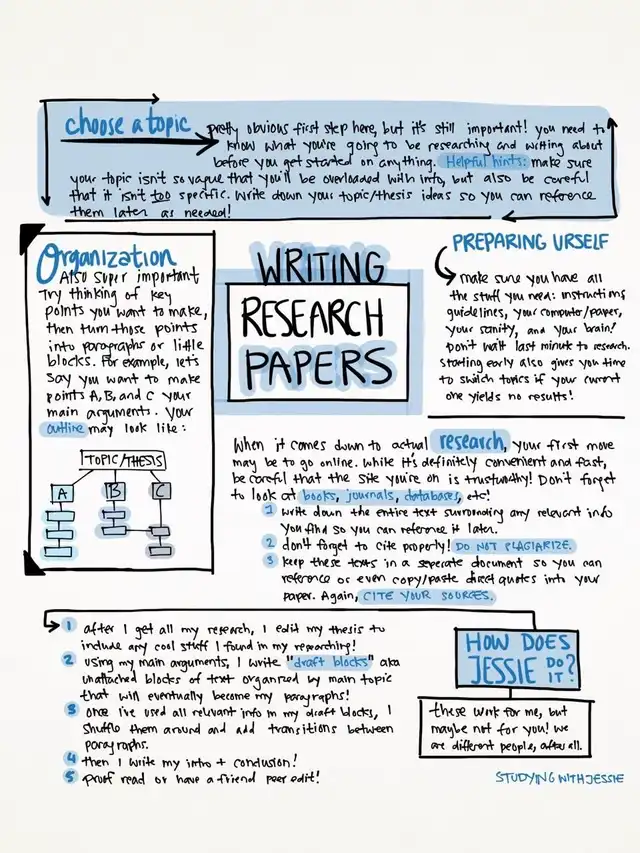 choose a topic
pretty obvious first step here, but it's still important! you need to
know what you're going to be researching and writing about
before you get started on anything. Helpful hints: make sure
your topic isn't so vague that you'll be overloaded with info, but also be careful
that it isn't too specific. Write down your topic/thesis ideas so you can reference
them later as needed!
Organization
Also super important
Try thinking of key
points you want to make,
then turn those points
into paragraphs or little
blocks. For example, let's
say you want to make
points A, B, and C your
main arguments. Your
outline may look like:
TOPIC/THESIS
A B C
WRITING
RESEARCH
PAPERS
PREPARING URSELF
make sure you have all
the stuff you need: instructions,
guidelines, your computer/paper,
your sanity, and your brain!
Don't wait last minute to research.
Starting early also gives you time
to switch topics if your current
one yields no results!
When it comes down to actual research, your first move
may be to go online. While it's definitely convenient and fast,
be careful that the site you're on is trustworthy! Don't forget
to look at books, journals, databases, etc!
1 Write down the entire text surrounding any relevant info
you find so you can reference it later.
2 don't forget to cite properly! DO NOT PLAGIARIZE.
3 keep these texts in a seperate document so you can
reference or even copy/paste direct quotes into your
paper. Again, CITE YOUR SOURCES.
1 after I get all my research, I edit my thesis to
include any cool stuff I found in my researching!
2 Using my main arguments, I write "draft blocks" aka
unattached blocks of text organized by main topic
that will eventually become my paragraphs!
3 once I've used all relevant info in my draft blocks, I
shuffle them around and add transitions between
paragraphs.
4 then I write my intro + conclusion!
5 Proof read or have a friend peer edit!
HOW DOES
JESSIE DO IT?
these work for me, but
maybe not for you! we
are different people, after all.
STUDYINGWITHJESSIE